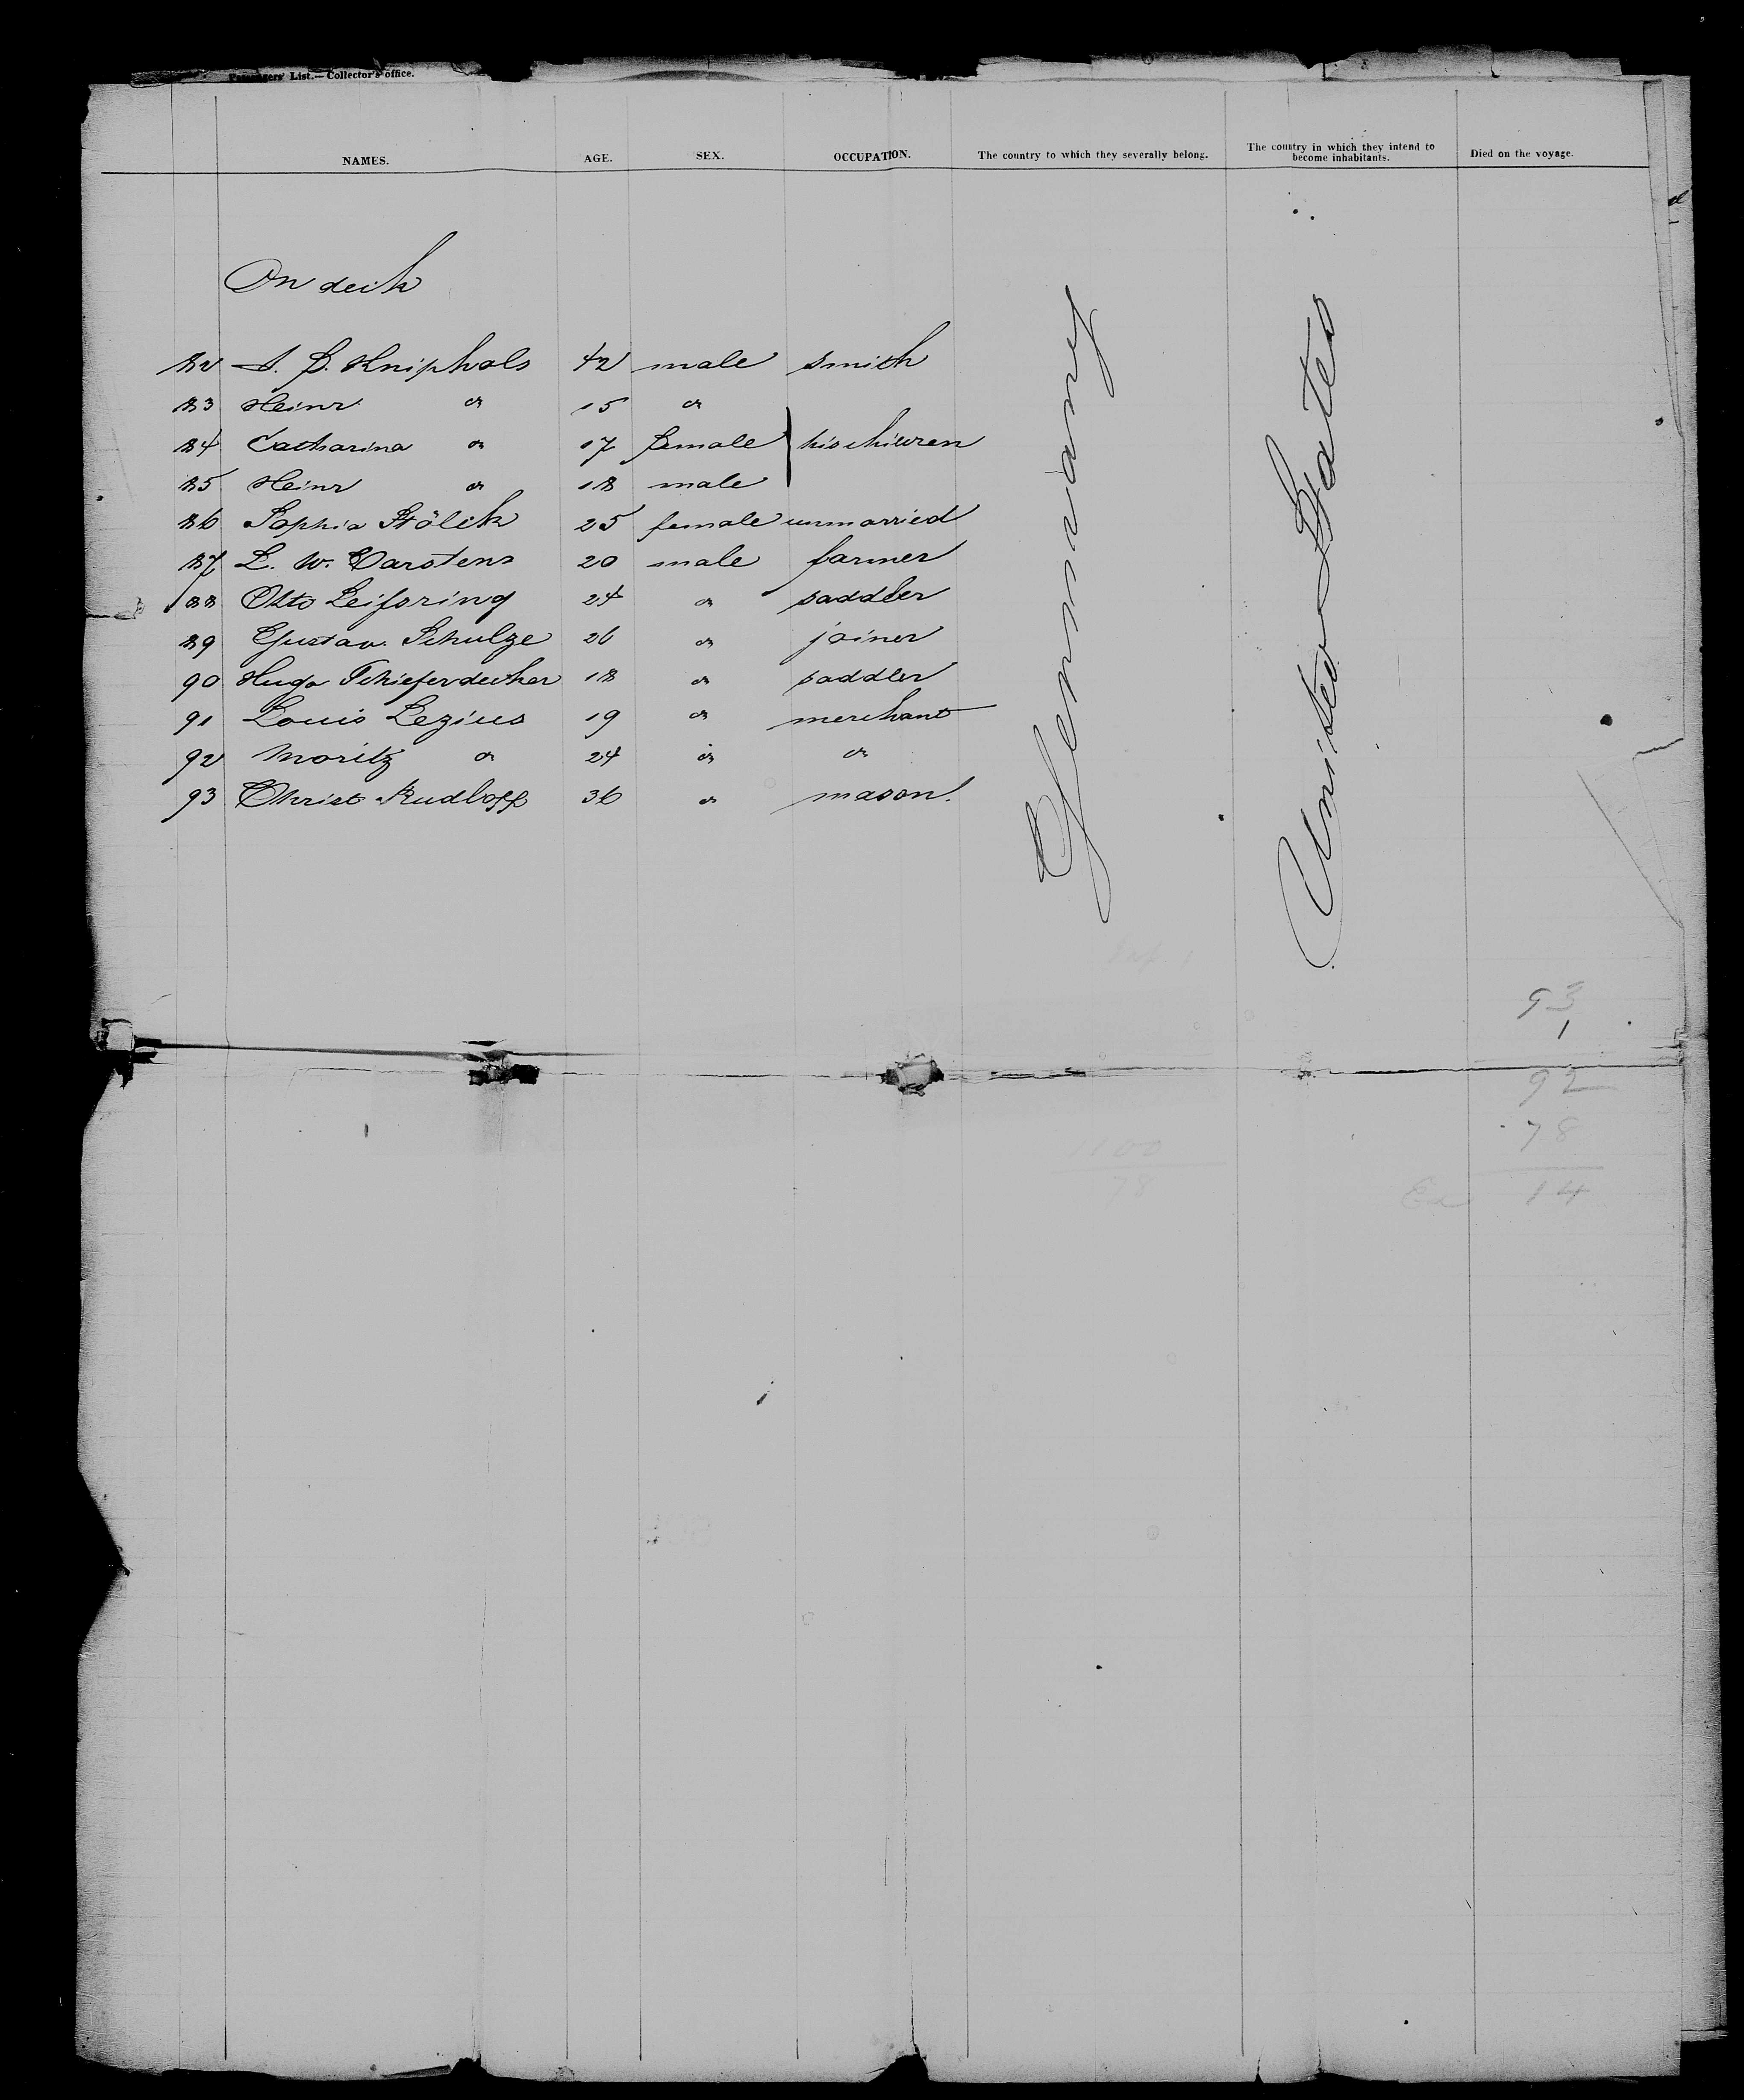 Passengers' List.—Collector's office.
NAMES. AGE. SEX. OCCUPATION. The country to which they severally belong. The country in which they intend to become inhabitants. Died on the voyage.
On deck
82 J. B. Kniphals 42 male smith
83 Heinr do 15 do
84 Catharina do 17 female his children
85 Heinr do 18 male
86 Sophia Stölck 25 female unmarried
87 L. W. Carstens 20 male farmer
88 Otto Leifsring 24 do saddler
89 Gustav Schulze 26 do joiner
90 Hugo Schieferdecker 18 do saddler
91 Louis Lezius 19 do merchant
92 Moritz do 24 do do
93 Christ Rudloff 36 do mason.
Germany
United States
93
1
92
78
14
1100
78